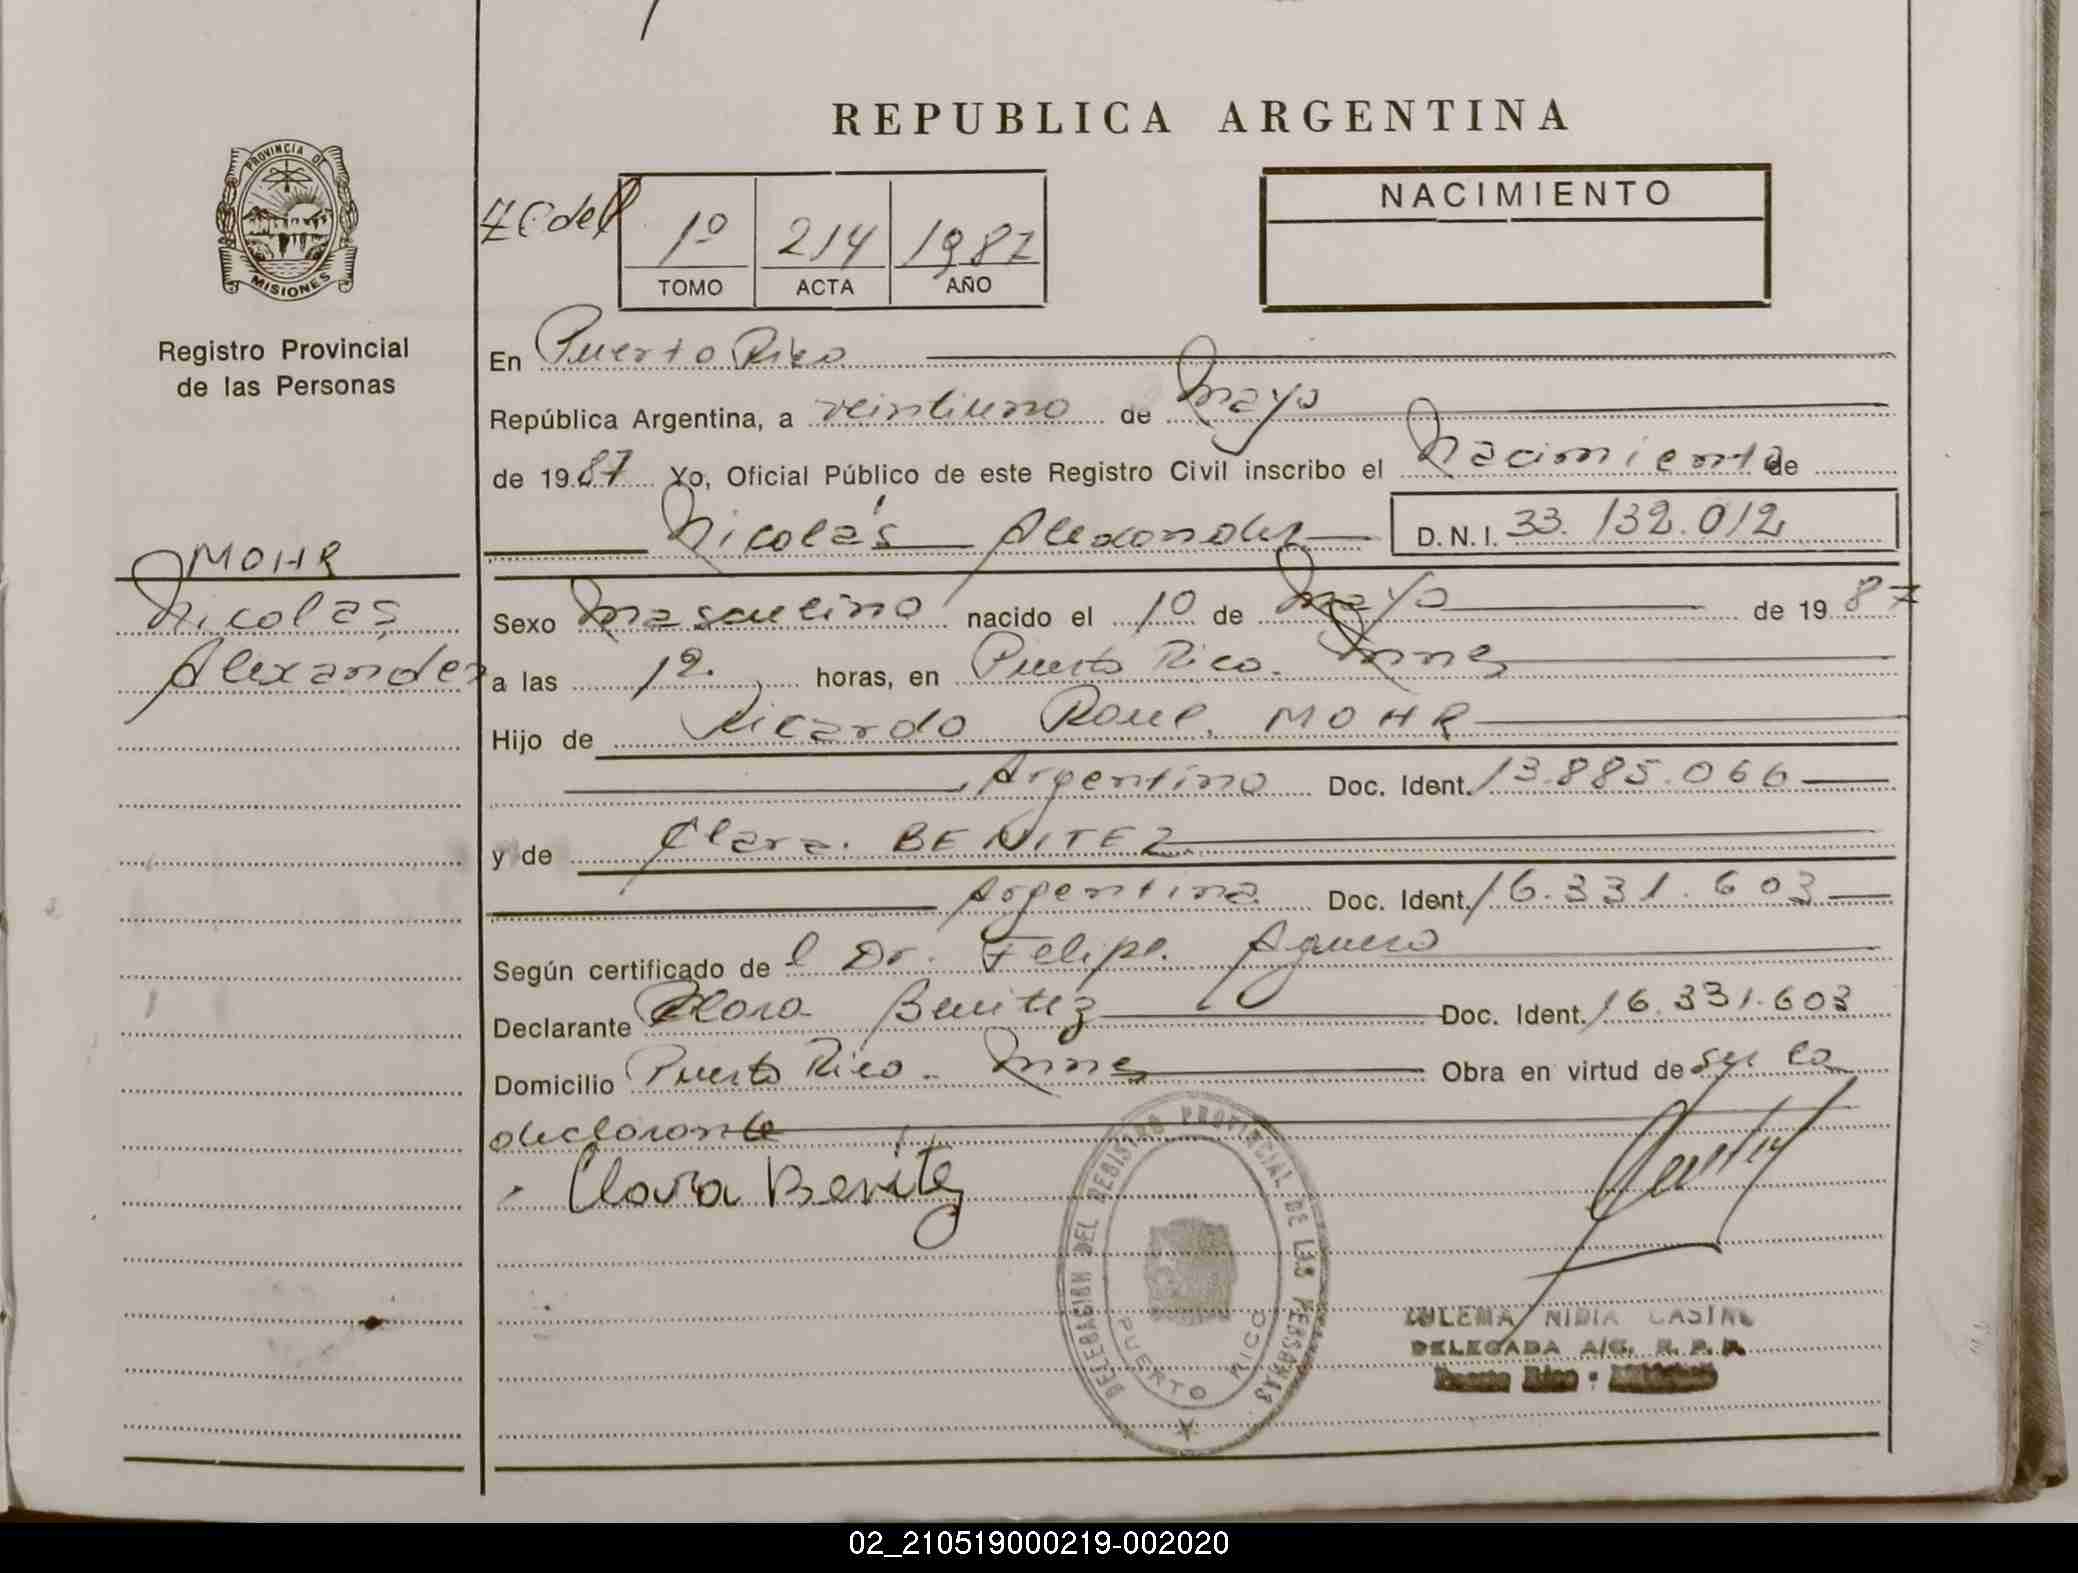 REPUBLICA ARGENTINA
PROVINCIA DE
MISIONES
Registro Provincial
de las Personas
1º 214 1987
TOMO ACTA AÑO
NACIMIENTO
En Puerto Rico
República Argentina, a veintiuno de Mayo
de 1987 Yo, Oficial Público de este Registro Civil inscribo el Nacimiento de
Nicolás Alexander D.N.I. 33.132.012
MOHR
Nicolás
Alexander
Sexo Masculino nacido el 10 de Mayo de 1987
a las 12. horas, en Puerto Rico. Mnes
Hijo de Ricardo Raul, MOHR
Argentino Doc. Ident. 13.885.066
y de Clara. BENITEZ
Argentina Doc. Ident. 16.331.603
Según certificado del Dr. Felipe Aguero
Declarante Clara Benitez Doc. Ident. 16.331.603
Domicilio Puerto Rico - Mnes Obra en virtud de ser la
declarante
Clara Benitez
DELEGACION DEL REGISTRO PROVINCIAL DE LAS PERSONAS
PUERTO RICO
ZULEMA NIDIA CASTRO
DELEGADA A/C. R. P. P.
Puerto Rico - Misiones
02_210519000219-002020